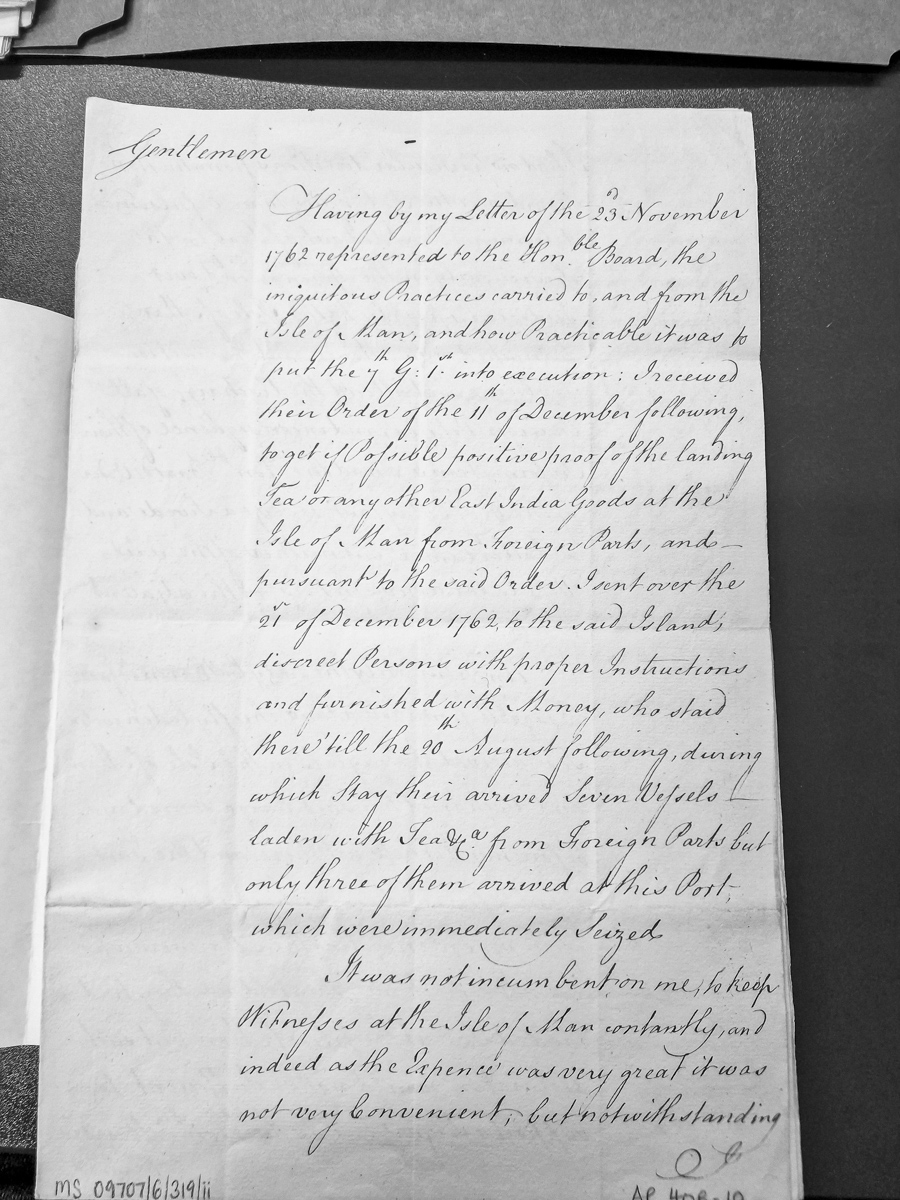 Gentlemen
Having by my Letter of the 23d November
1762 represented to the Hon.ble Board, the
iniquitous Practices carried to, and from the
Isle of Man, and how Practicable it was to
put the 7th G: 1st into execution; I received
their Order of the 11th of December following,
to get if Possible positive proof of the landing
Tea or any other East India Goods at the
Isle of Man from Foreign Parts, and —
pursuant to the said Order. I sent over the
21st of December 1762, to the said Island,
discreet Persons with proper Instructions
and furnished with Money, who staid
there 'till the 20th August following, during
which Stay their arrived Seven Vessels —
laden with Tea &ca. from Foreign Parts but
only three of them arrived at this Port,
which were immediately Seized
It was not incumbent on me, to keep
Witnesses at the Isle of Man contantly, and
indeed as the Expence was very great it was
not very Convenient; but notwithstanding
MS 09707/6/319/ii